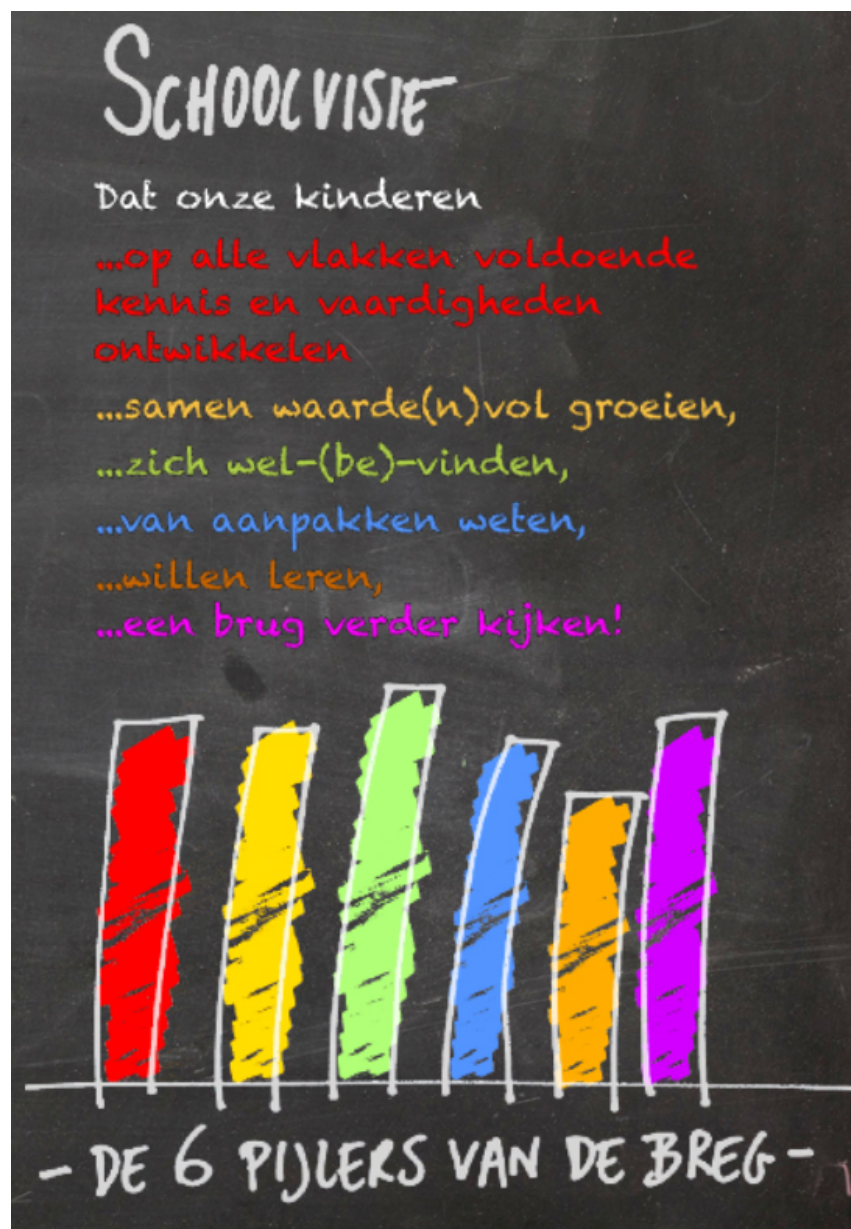 SCHOOLVISIE
Dat onze kinderen
...op alle vlakken voldoende
kennis en vaardigheden
ontwikkelen
...samen waarde(n)vol groeien,
...zich wel-(be)-vinden,
...van aanpakken weten,
...willen leren,
...een brug verder kijken!
- DE 6 PIJLERS VAN DE BREG -